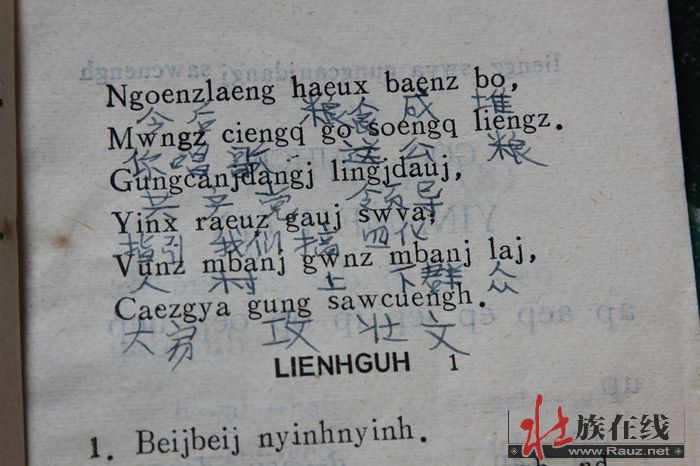 Ngoenzlaeng haeux baenz bo,
今后 粮食 成 堆
Mwngz ciengq go soengq liengz.
你 唱 歌 送 公 粮
Gungcanjdangj lingjdauj,
共 产 党 领导
Yinx raeuz gauj swva;
指引 我们 搞 四化
Vunz mbanj gwnz mbanj laj,
人 村 上 下 群 众
Caezgya gung sawcuengh.
大 家 攻 壮 文
LIENHGUH 1
1. Beijbeij nyinhnyinh.
壮族在线
www.Rauz.net